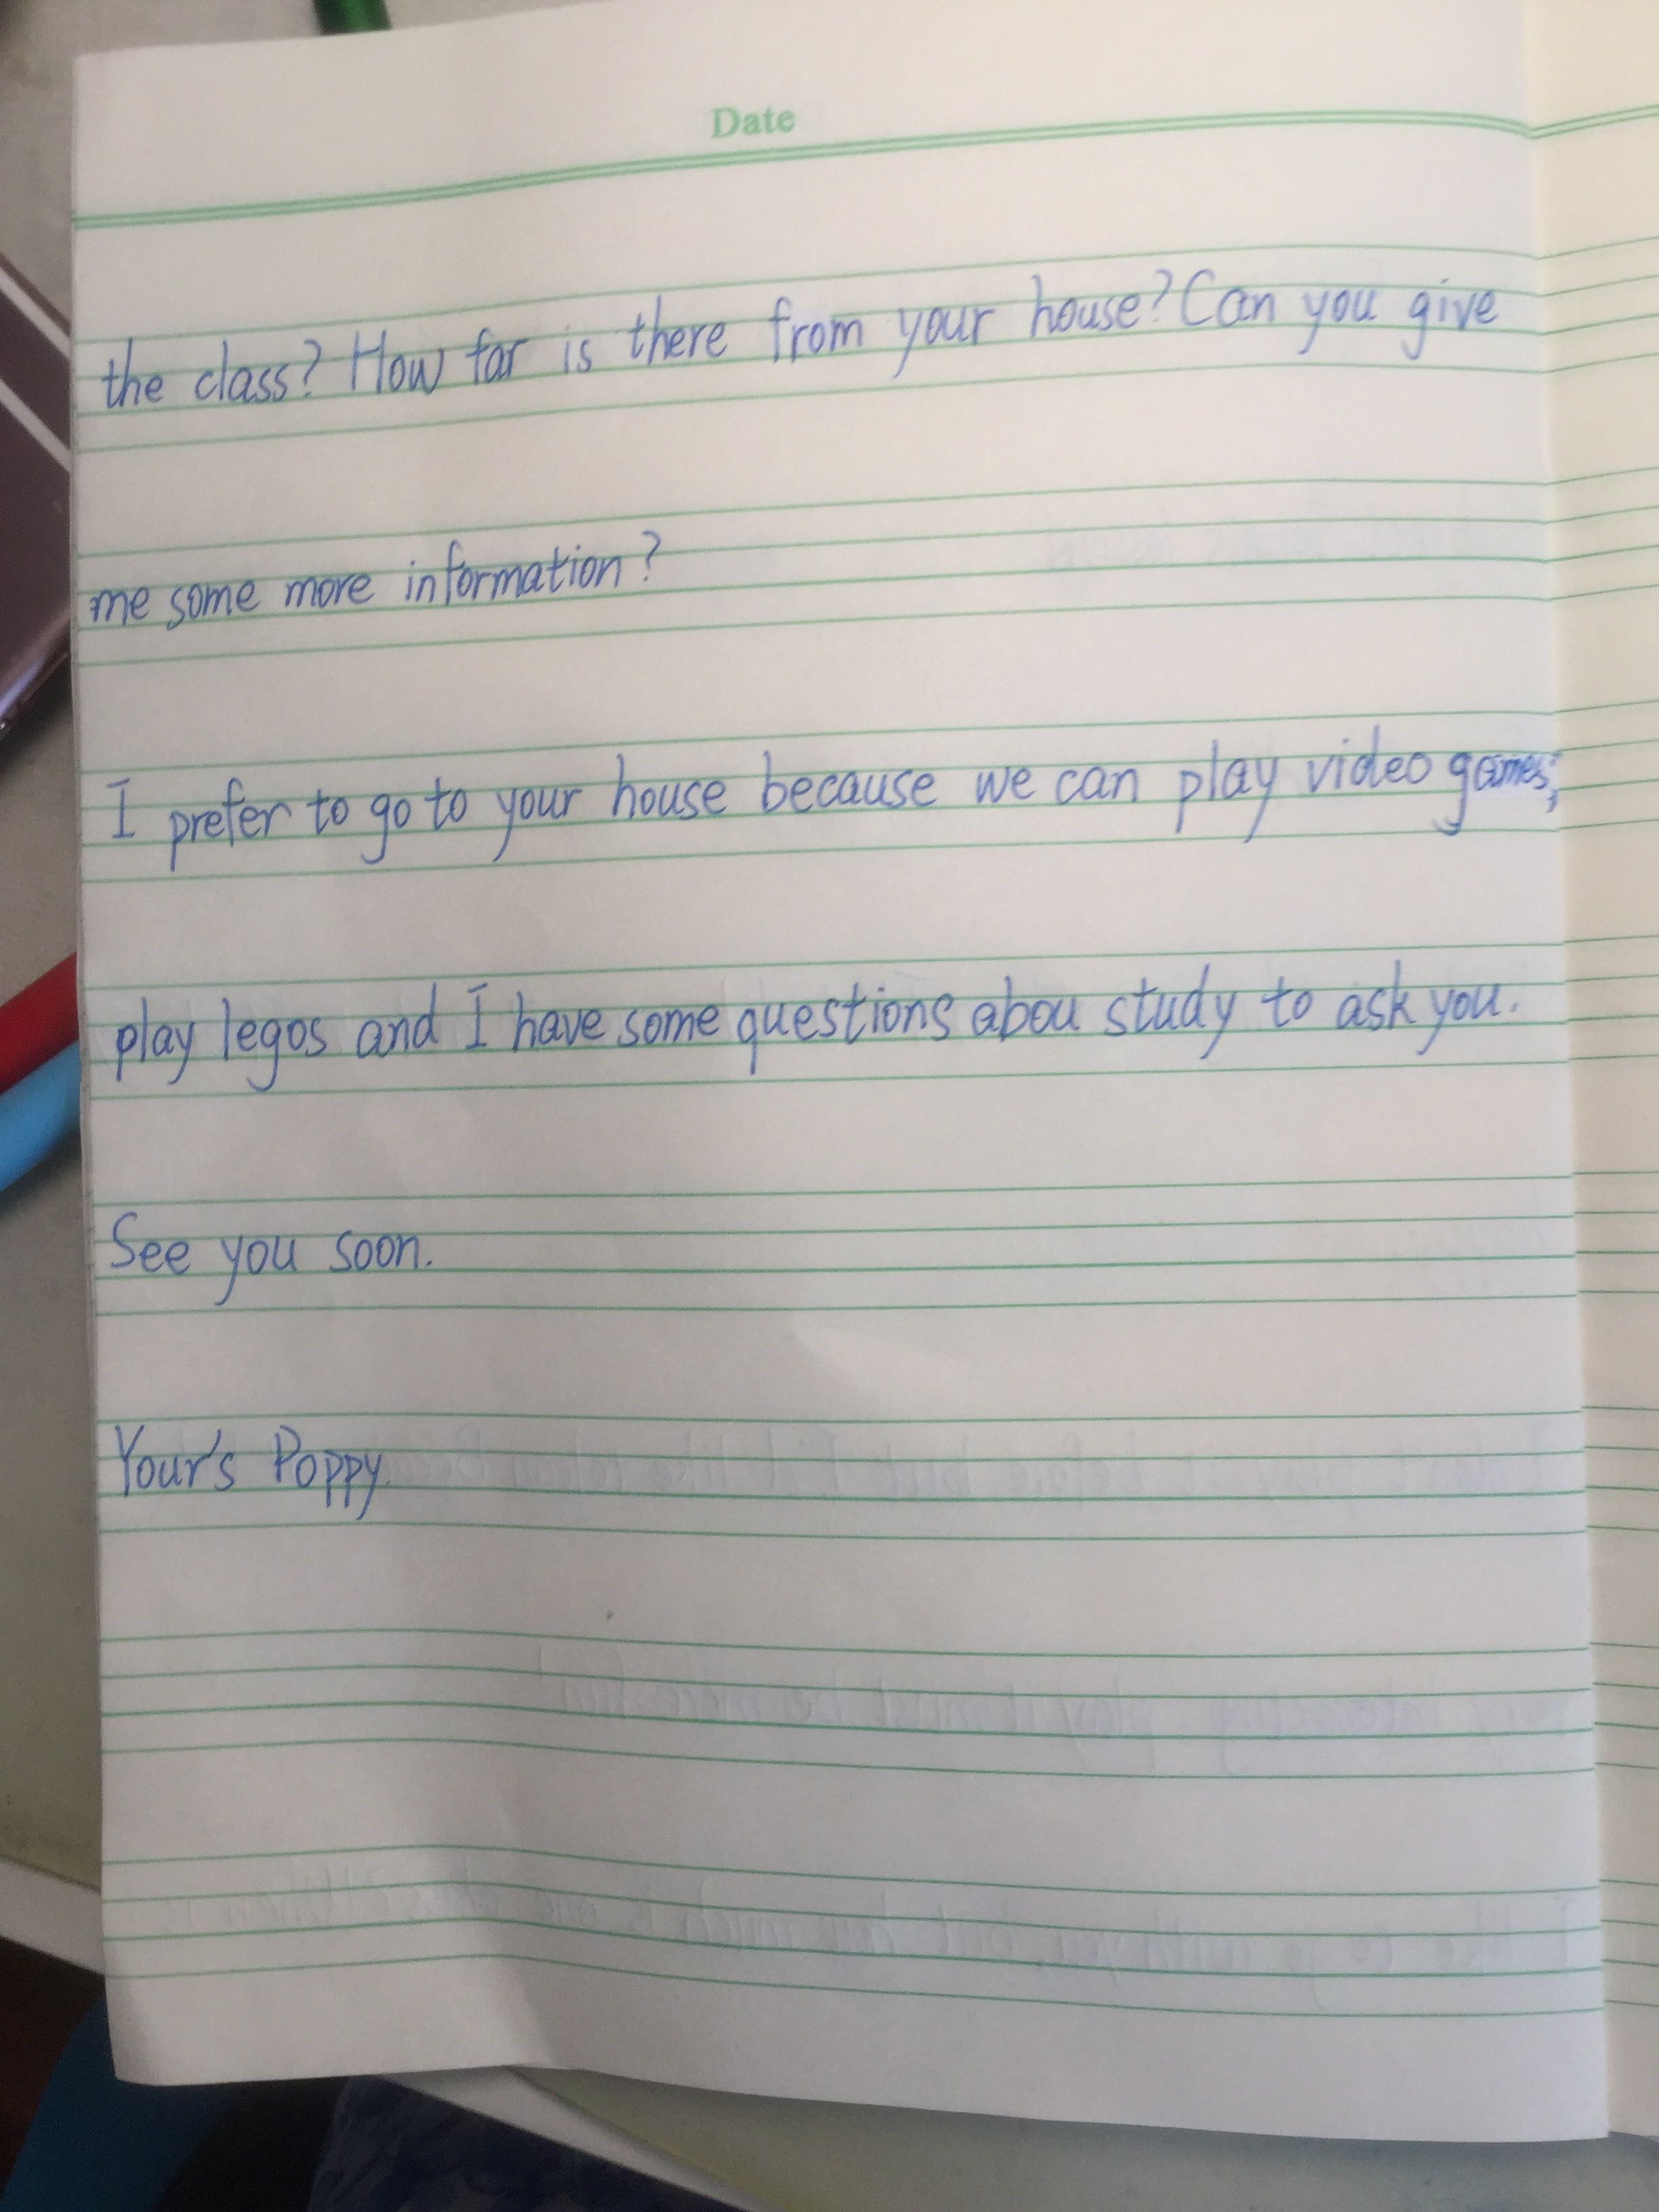 Date
the class? How far is there from your house? Can you give
me some more information?
I prefer to go to your house because we can play video games,
play legos and I have some questions abou study to ask you.
See you soon.
Your's Poppy.